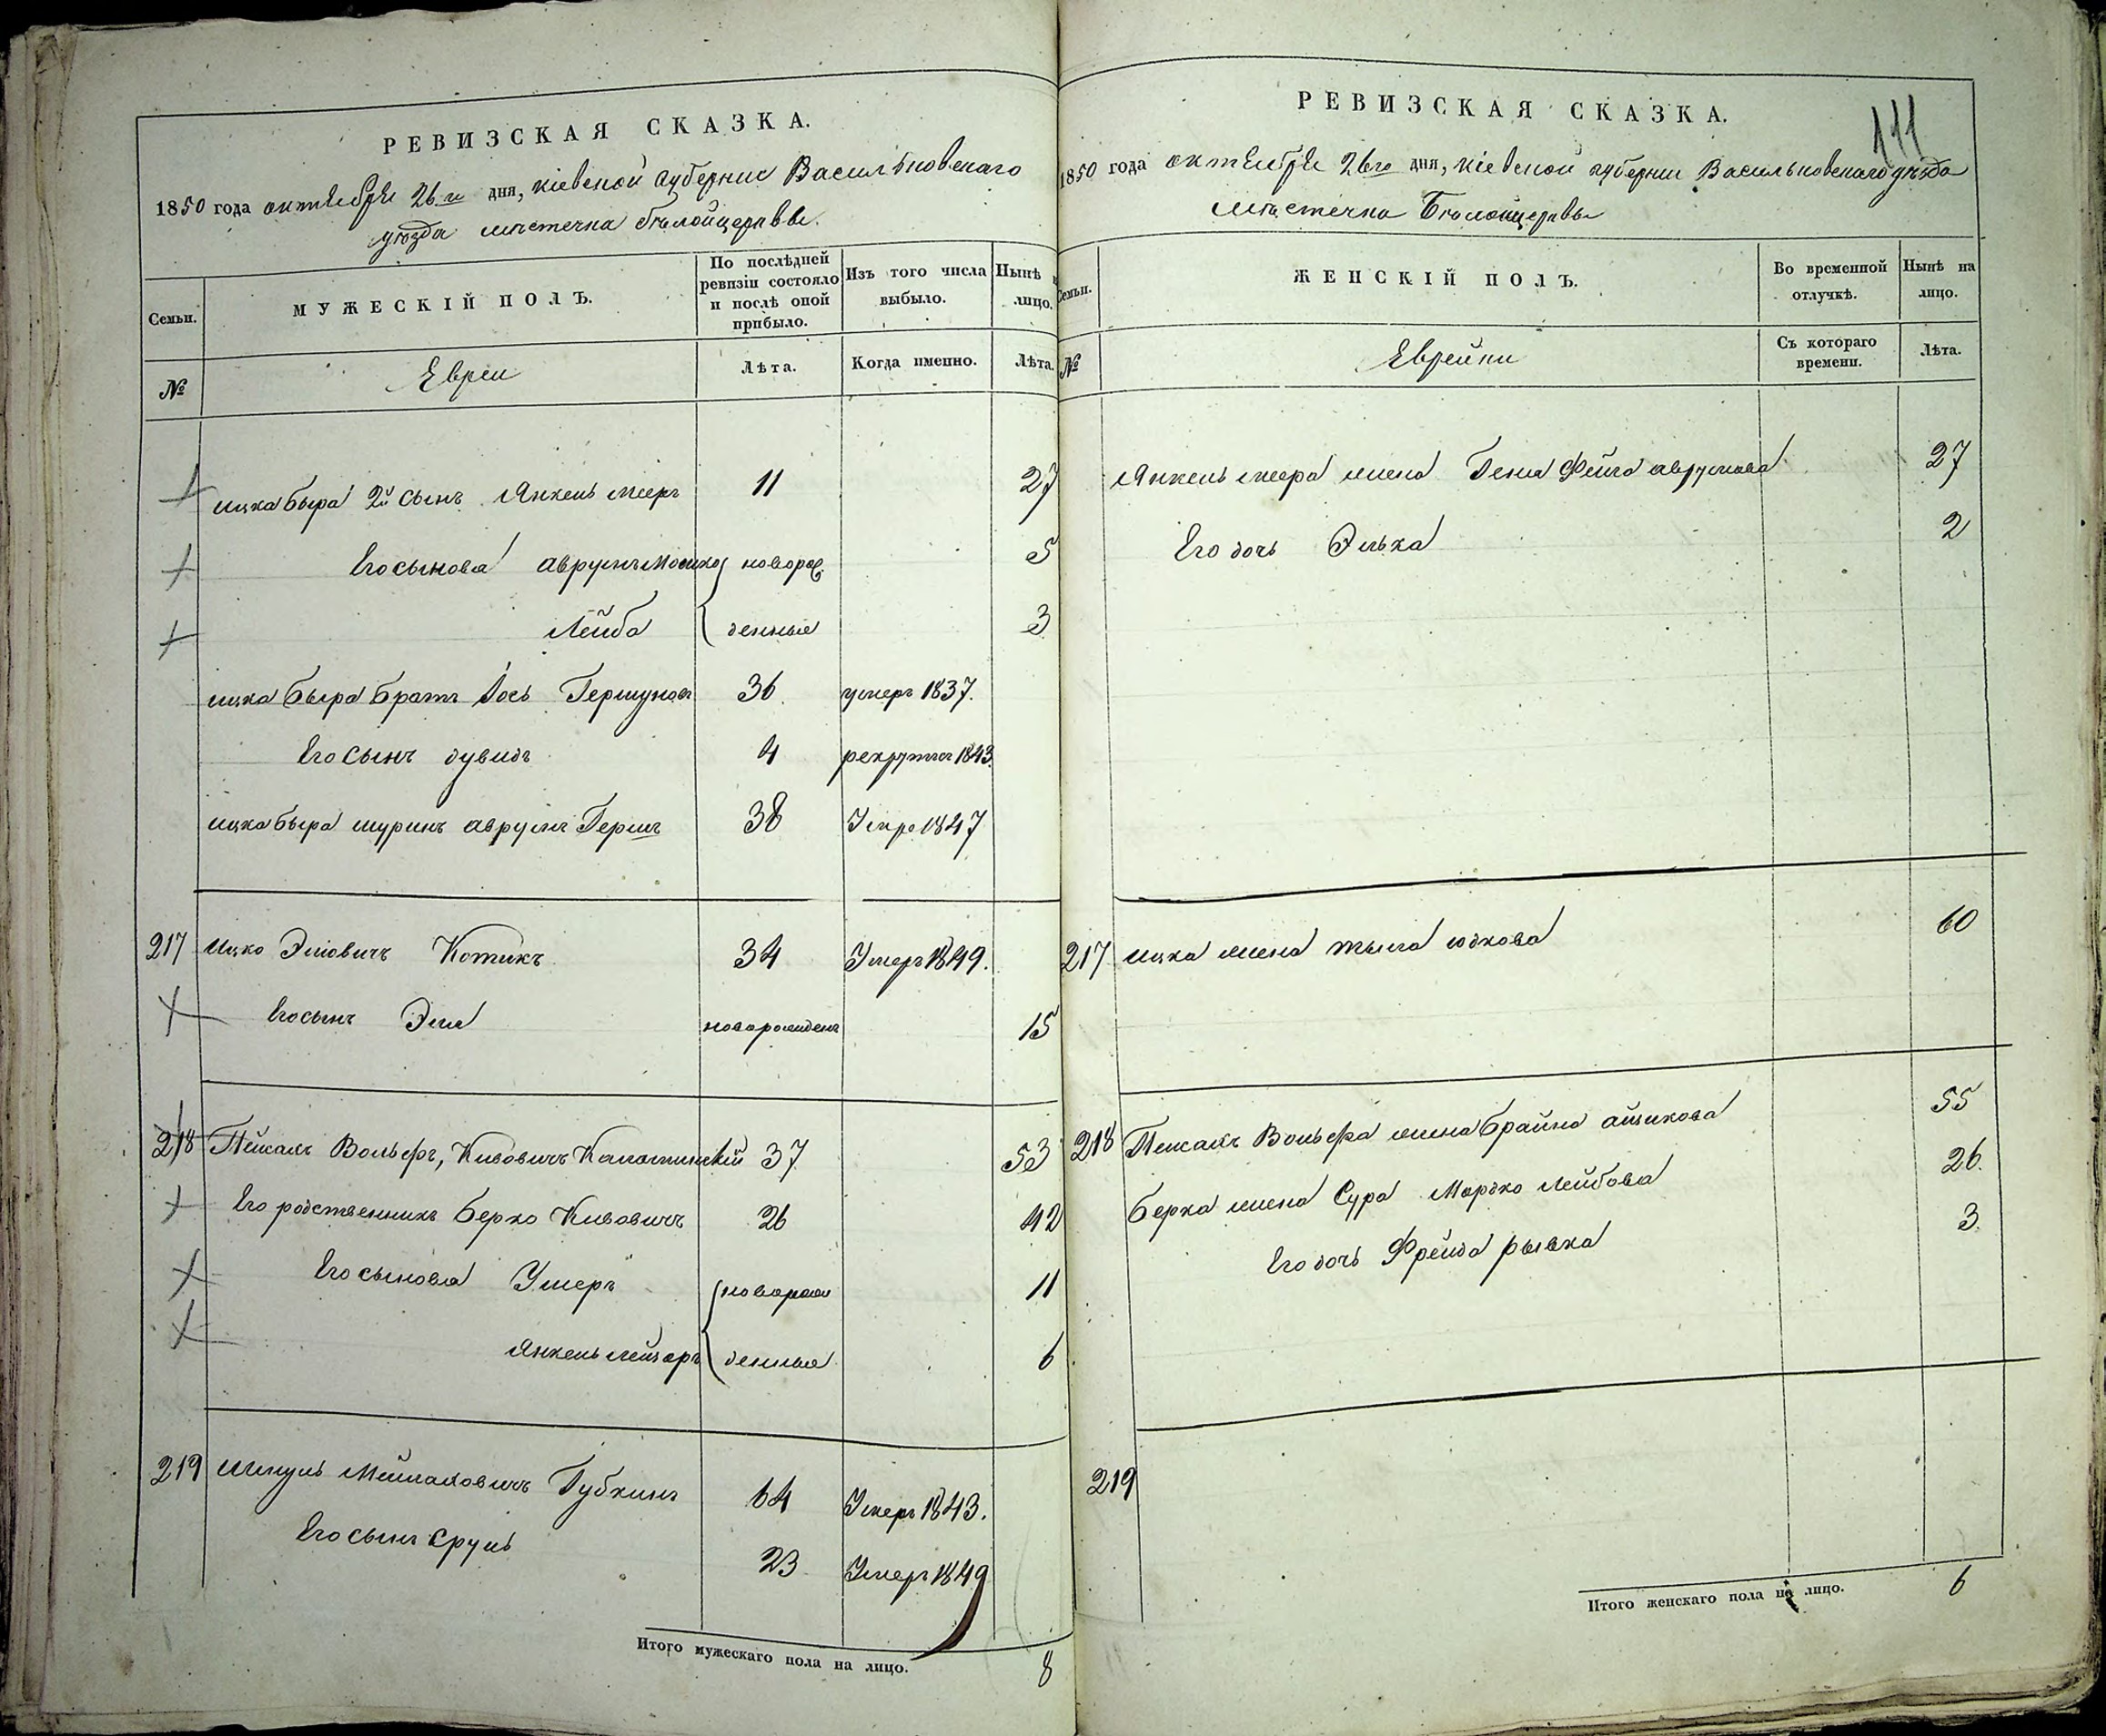 РЕВИЗСКАЯ СКАЗКА.
1850 года октября 26го дня, Кіевской губерніи Васильковскаго
уѣзда мѣстечка Бѣлойцеркви.
Семьи.
МУЖЕСКІЙ ПОЛЪ.
По послѣдней ревизіи состояло и послѣ оной прибыло.
Изъ того числа выбыло.
Нынѣ на лицо.
№
Евреи
Лѣта.
Когда именно.
Лѣта.
Ицка Бера 2й сынъ Янкель Меер 11 27
Его сыновья Аврумъ Мошко новорож 5
Лейба денные 3
Ицка Бера братъ Іось Гершуновъ 36 умеръ 1837.
Его сынъ Дувидъ 4 рекрутъ 1843.
Ицка Бера шуринъ Аврумъ Герш 38 Умре 1847
217 Ицко Эліовичъ Котикъ 34 Умеръ 1849.
Его сынъ Эля новорожденъ 15
218 Пейсахъ Вольфъ, Кивовичъ 37 53
Его родственникъ Берко Кивовичъ 26 42
Его сыновья Ушеръ новорож 11
Янкель Лейзоръ денные 6
219 Шмуль Губкинъ 64 Умеръ 1843.
Его сынъ Сруль 23 Умеръ 1849
Итого мужескаго пола на лицо. 8
РЕВИЗСКАЯ СКАЗКА.
111
1850 года октября 26го дня, Кіевской губерніи Васильковскаго уѣзда
мѣстечка Бѣлойцеркви
Семьи.
ЖЕНСКІЙ ПОЛЪ.
Во временной отлучкѣ.
Нынѣ на лицо.
№
Еврейки
Съ котораго времени.
Лѣта.
Янкель Меера жена Геня Фейга Аврумова 27
Его дочь Элька 2
217 Ицка жена Юдкова 60
218 Пейсахъ Вольфа жена Брайна Айзикова 55
Берка жена Сура Марько Лейбова 26.
Его дочь Фрейда Рывка 3.
219
Итого женскаго пола на лицо. 6